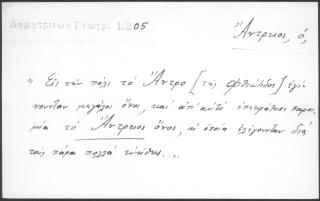 Δημητριεων Γεωγρ. 1.205
Ἄντρκιος, ὁ,
" Εἰς τὴν πόλι τὸ Ἄντρο [τῆς Φθιώτιδος] ἐγί-
νουνταν μεγάλοι ὄνοι, καὶ ἀπ' αὐτὸ ἐπεκράτησε παροι-
μία τὸ Ἄντρκιος ὄνος, οἱ ὁποῖοι ἐλέγουνταν διὰ
τοὺς πάρα πολλὰ εὐήθεις. "